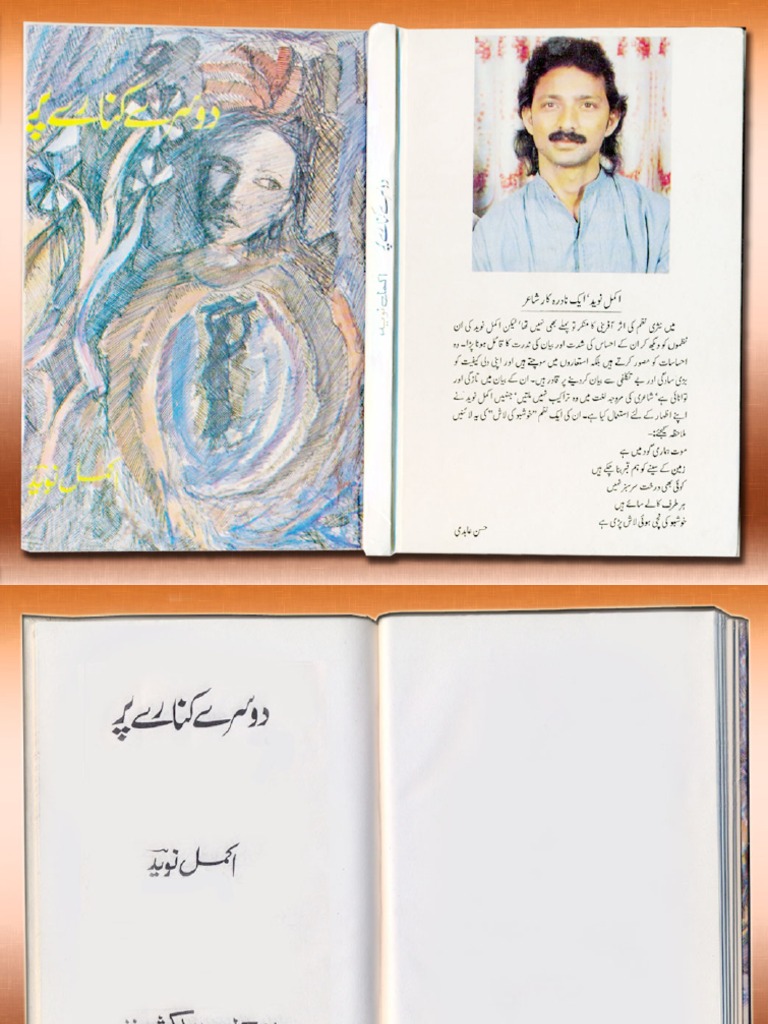 دوسرے کنارے پر
اکمل نوید
دوسرے کنارے پر
اکمل نوید
اکمل نوید' ایک نادرہ کار شاعر
میں نثری نظم کی اثر آفرینی کا منکر تو پہلے بھی نہیں تھا' لیکن اکمل نوید کی ان
نظموں کو دیکھ کر ان کے احساس کی شدت اور بیان کی ندرت کا قائل ہونا پڑا۔ وہ
احساسات کو مصور کرتے ہیں بلکہ استعاروں میں سوچتے ہیں اور اپنی دلی کیفیت کو
بڑی سادگی اور بے تکلفی سے بیان کر دینے پر قادر ہیں۔ ان کے بیان میں تازگی اور
توانائی ہے' شاعری کی مروجہ لغت میں وہ تراکیب نہیں ملتیں' جنہیں اکمل نوید نے
اپنے اظہار کے لئے استعمال کیا ہے۔ ان کی ایک نظم "خوشبو کی لاش" کی یہ لائنیں
ملاحظہ کیجئے:-
موت ہماری گود میں ہے
زمین کے سینے کو ہم قبر بنا چکے ہیں
کوئی بھی درخت سرسبز نہیں
ہر طرف کالے سائے ہیں
خوشبو کی نچی ہوئی لاش پڑی ہے
حسن عابدی
دوسرے کنارے پر
اکمل نوید